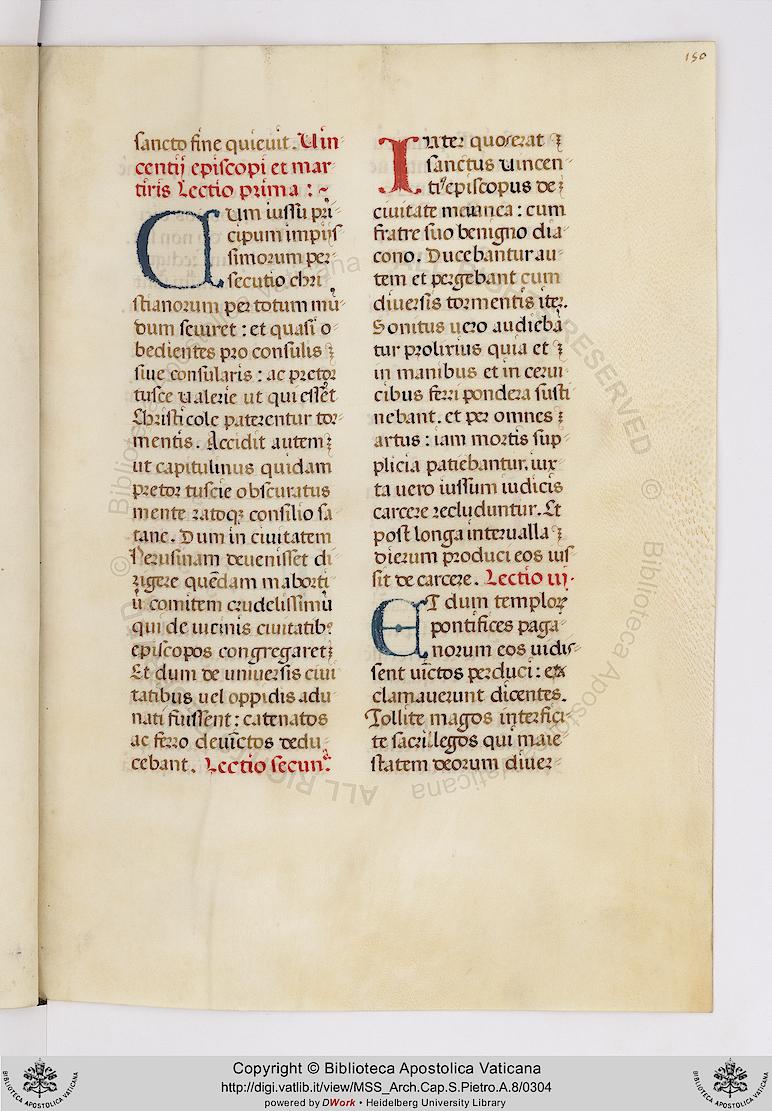 150
sancto fine quieuit. Uin
centij episcopi et mar
tiris Lectio prima : ~
Cum iussu pri
cipum impijs
simorum per
secutio chri
stianorum per totum mū
dum seuiret : et quasi o
bedientes pro consulis
siue consularis : ac pretor
tusce ualerie ut qui essēt
Christi cole paterentur tor
mentis. Accidit autem
ut capitulinus quidam
pretor tuscie obscuratus
mente ratoqꝫ consilio sa
tane. Dum in ciuitatem
Perusinam deuenisset di
rigere quēdam maborti
ū comitem crudelissimū
qui de uicinis ciuitatibꝫ
episcopos congregaret
Et dum de uniuersis ciui
tatibus uel oppidis adu
nati fuissent : catenatos
ac ferro deuīctos dedu
cebant. Lectio secunᵃ.
Inter quos erat
sanctus uincen
tiꝰ episcopus de
ciuitate meuanca : cum
fratre suo benigno dia
cono. Ducebantur au
tem et pergebant cum
diuersis tormentis iter.
Sonitus uero audiebā
tur prolixius quia et
in manibus et in cerui
cibus ferri pondera susti
nebant. et per omnes
artus : iam mortis sup
plicia patiebantur. iux
ta uero iussum iudicis
carcere recluduntur. Et
post longa interualla
dierum produci eos ius
sit de carcere. Lectio iij.
Et dum temploꝝ
pontifices paga
norum eos uidis
sent uīctos perduci : ex
clamauerunt dicentes.
Tollite magos interfici
te sacrilegos qui maie
statem deorum diuer
Copyright © Biblioteca Apostolica Vaticana
http://digi.vatlib.it/view/MSS_Arch.Cap.S.Pietro.A.8/0304
powered by DWork • Heidelberg University Library
BIBLIOTECA APOSTOLICA VATICANA
BIBLIOTECA APOSTOLICA VATICANA